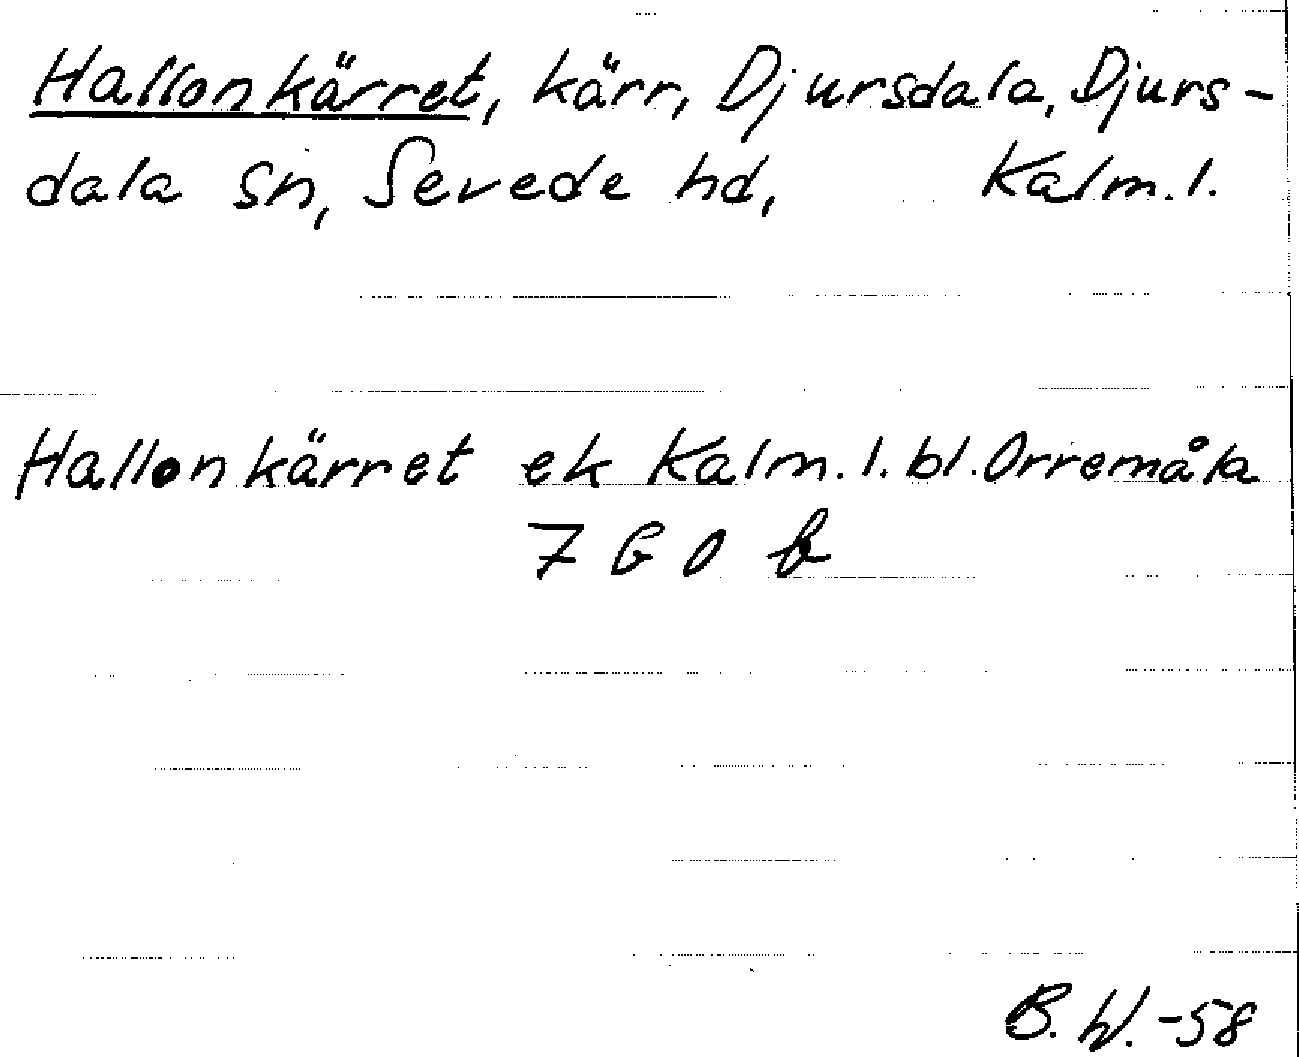 Hallonkärret, kärr, Djursdala, Djurs-
dala sn, Sevede hd, Kalm. l.
Hallonkärret ek Kalm. l. bl. Orremåla
7 G 0 b
B.W. -58